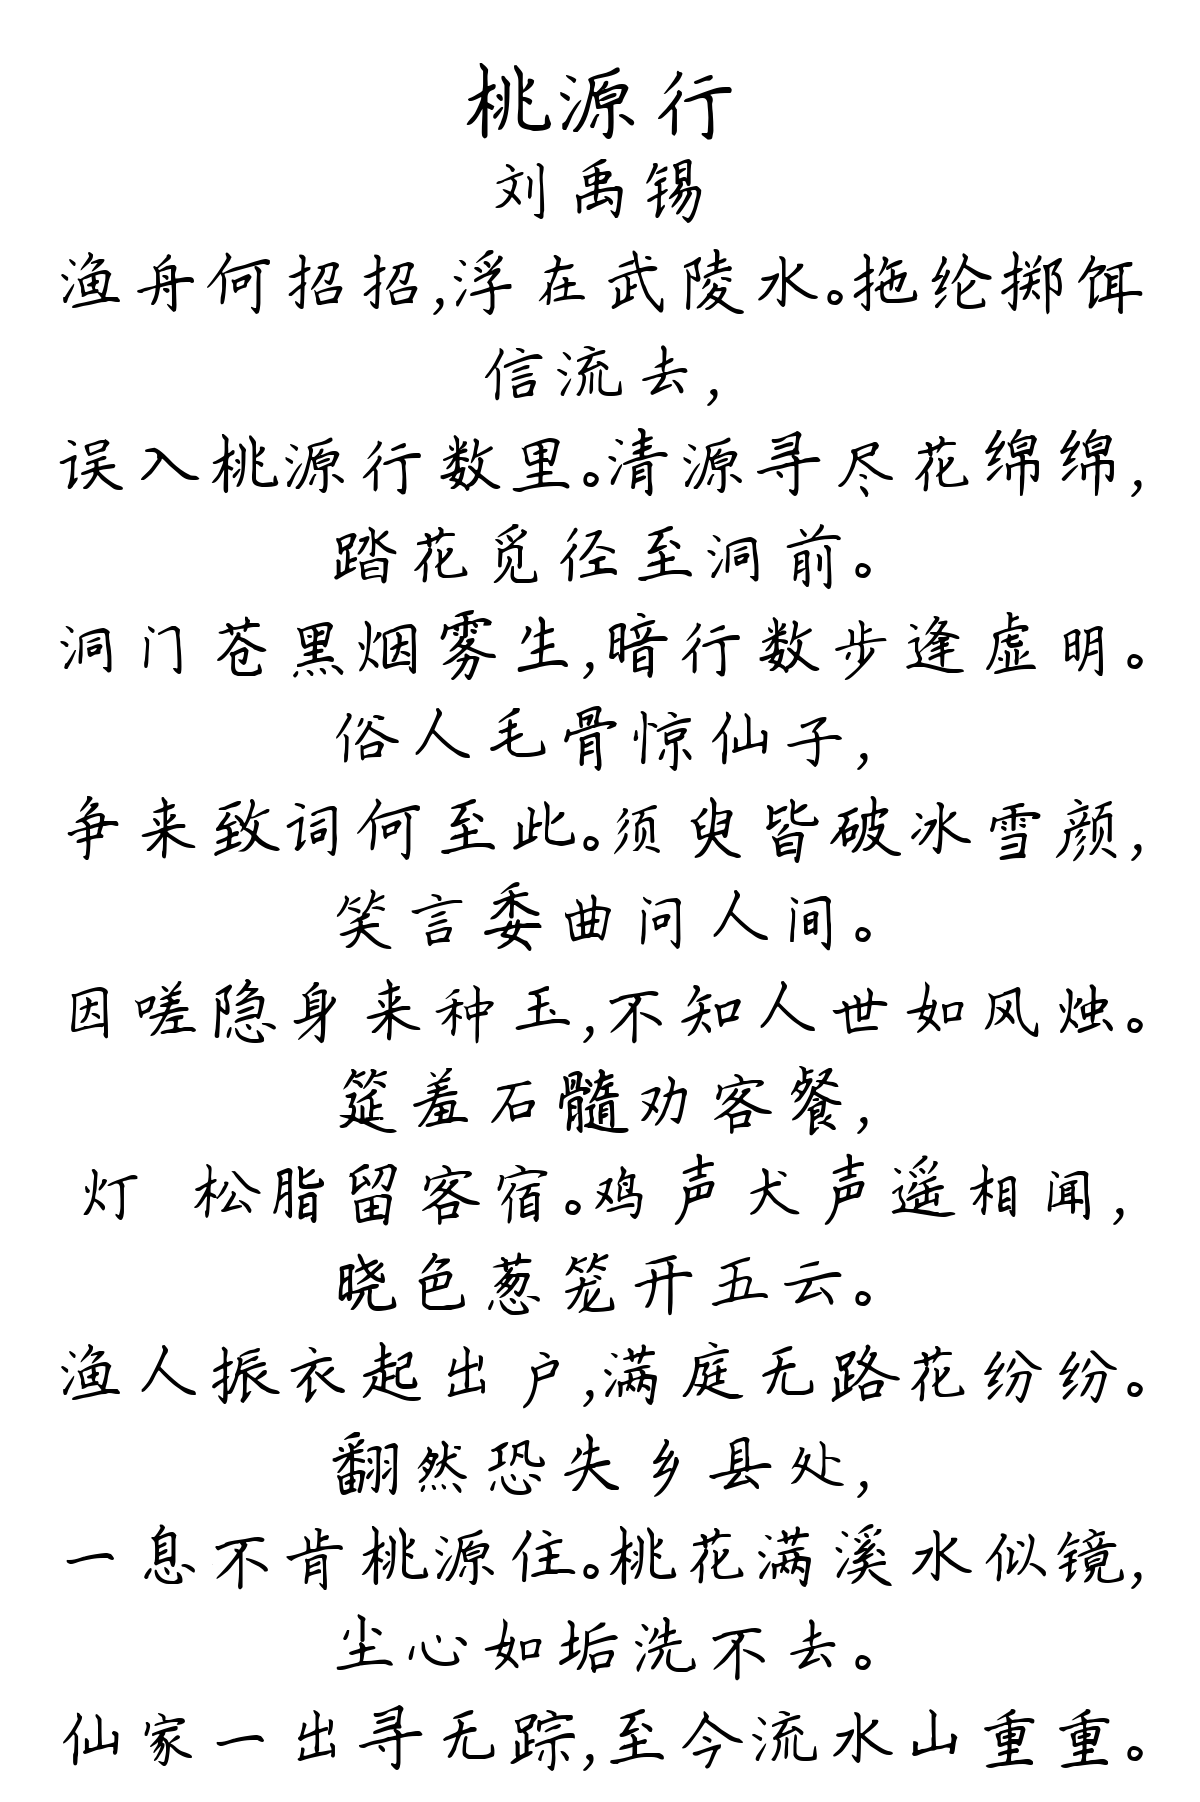 桃源行
刘禹锡
渔舟何招招,浮在武陵水。拖纶掷饵
信流去,
误入桃源行数里。清源寻尽花绵绵,
踏花觅径至洞前。
洞门苍黑烟雾生,暗行数步逢虚明。
俗人毛骨惊仙子,
争来致词何至此。须臾皆破冰雪颜,
笑言委曲问人间。
因嗟隐身来种玉,不知人世如风烛。
筵羞石髓劝客餐,
灯 松脂留客宿。鸡声犬声遥相闻,
晓色葱笼开五云。
渔人振衣起出户,满庭无路花纷纷。
翻然恐失乡县处,
一息不肯桃源住。桃花满溪水似镜,
尘心如垢洗不去。
仙家一出寻无踪,至今流水山重重。